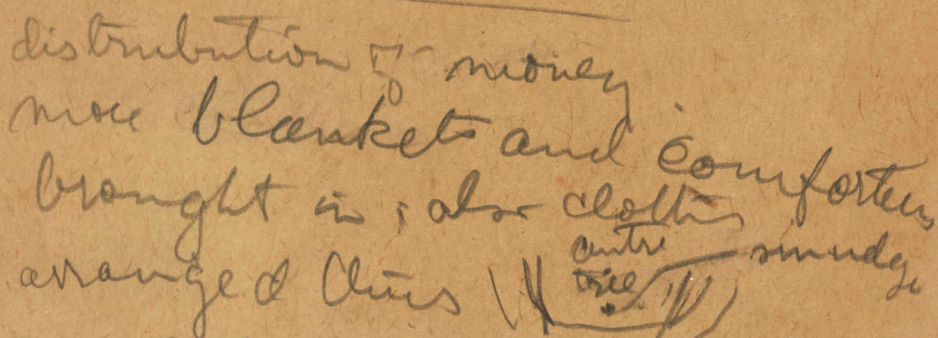 distribution of money
more blankets and comforters
brought in; also clothing
arranged thus
tree
smudge